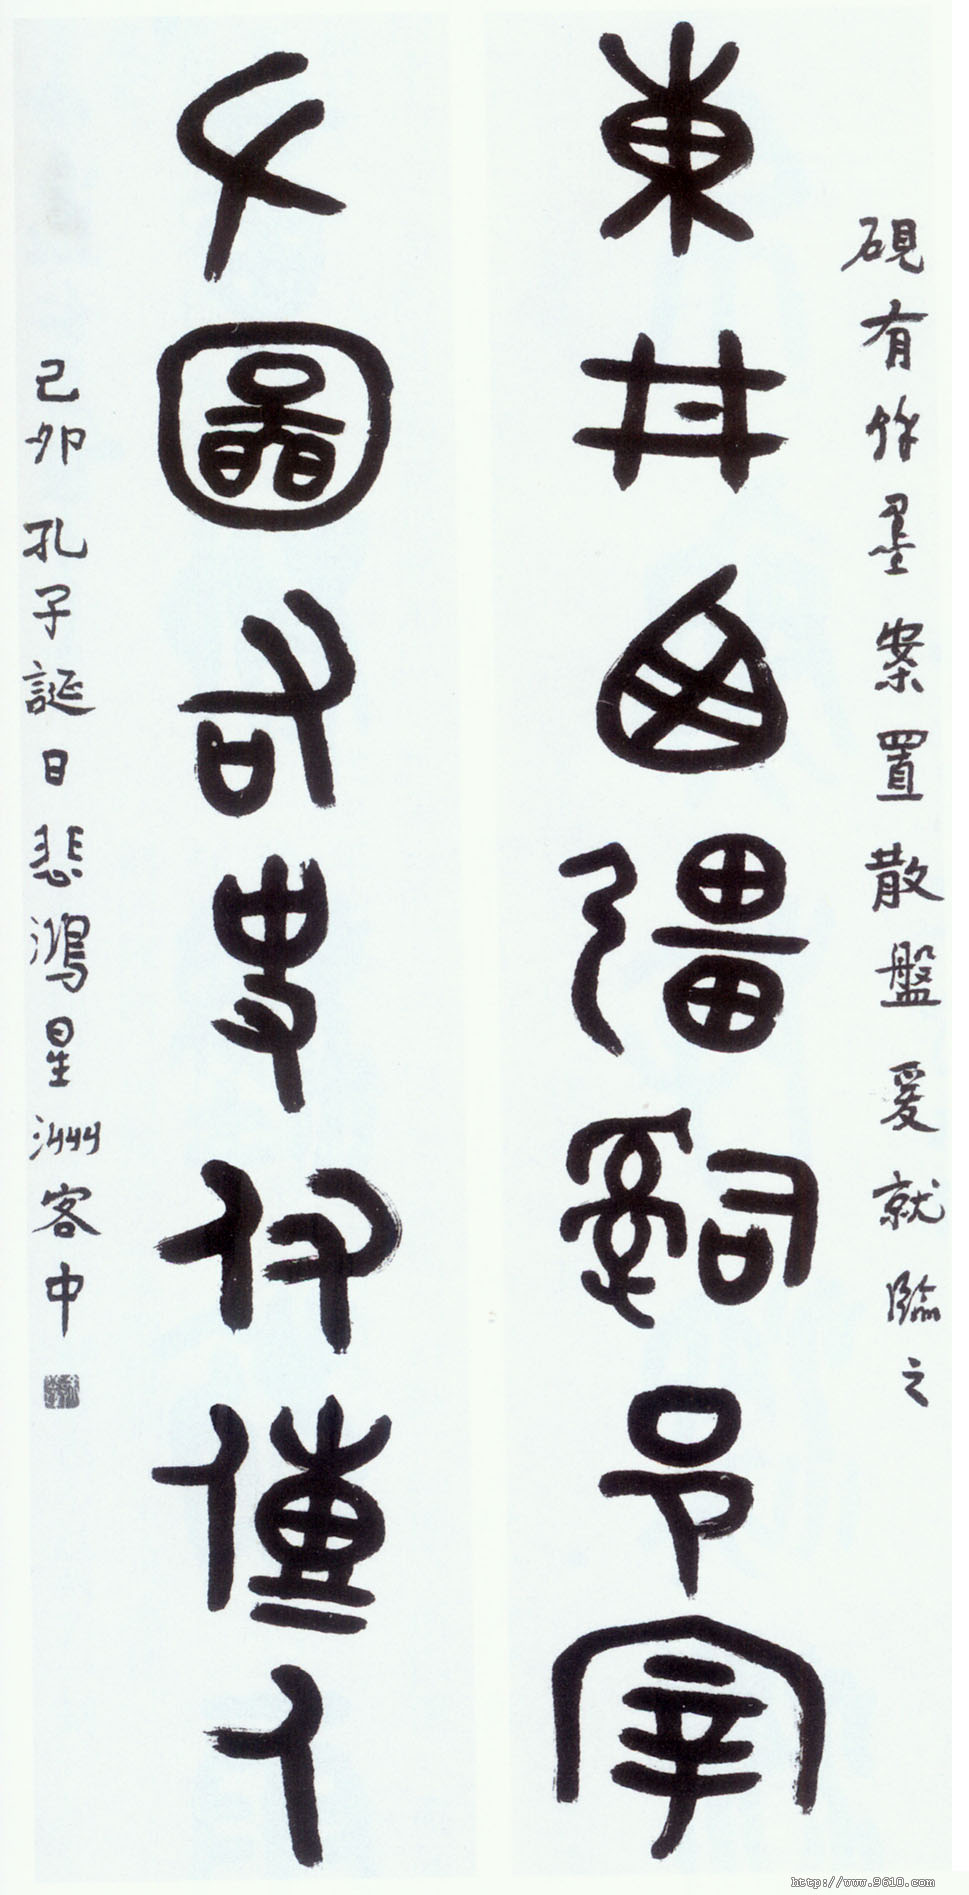 硯有餘墨案置散盤爰就臨之
東井西疆𤔲邑宰
左圖右史付僅人
己卯孔子誕日悲鴻星洲客中
http://www.9610.com